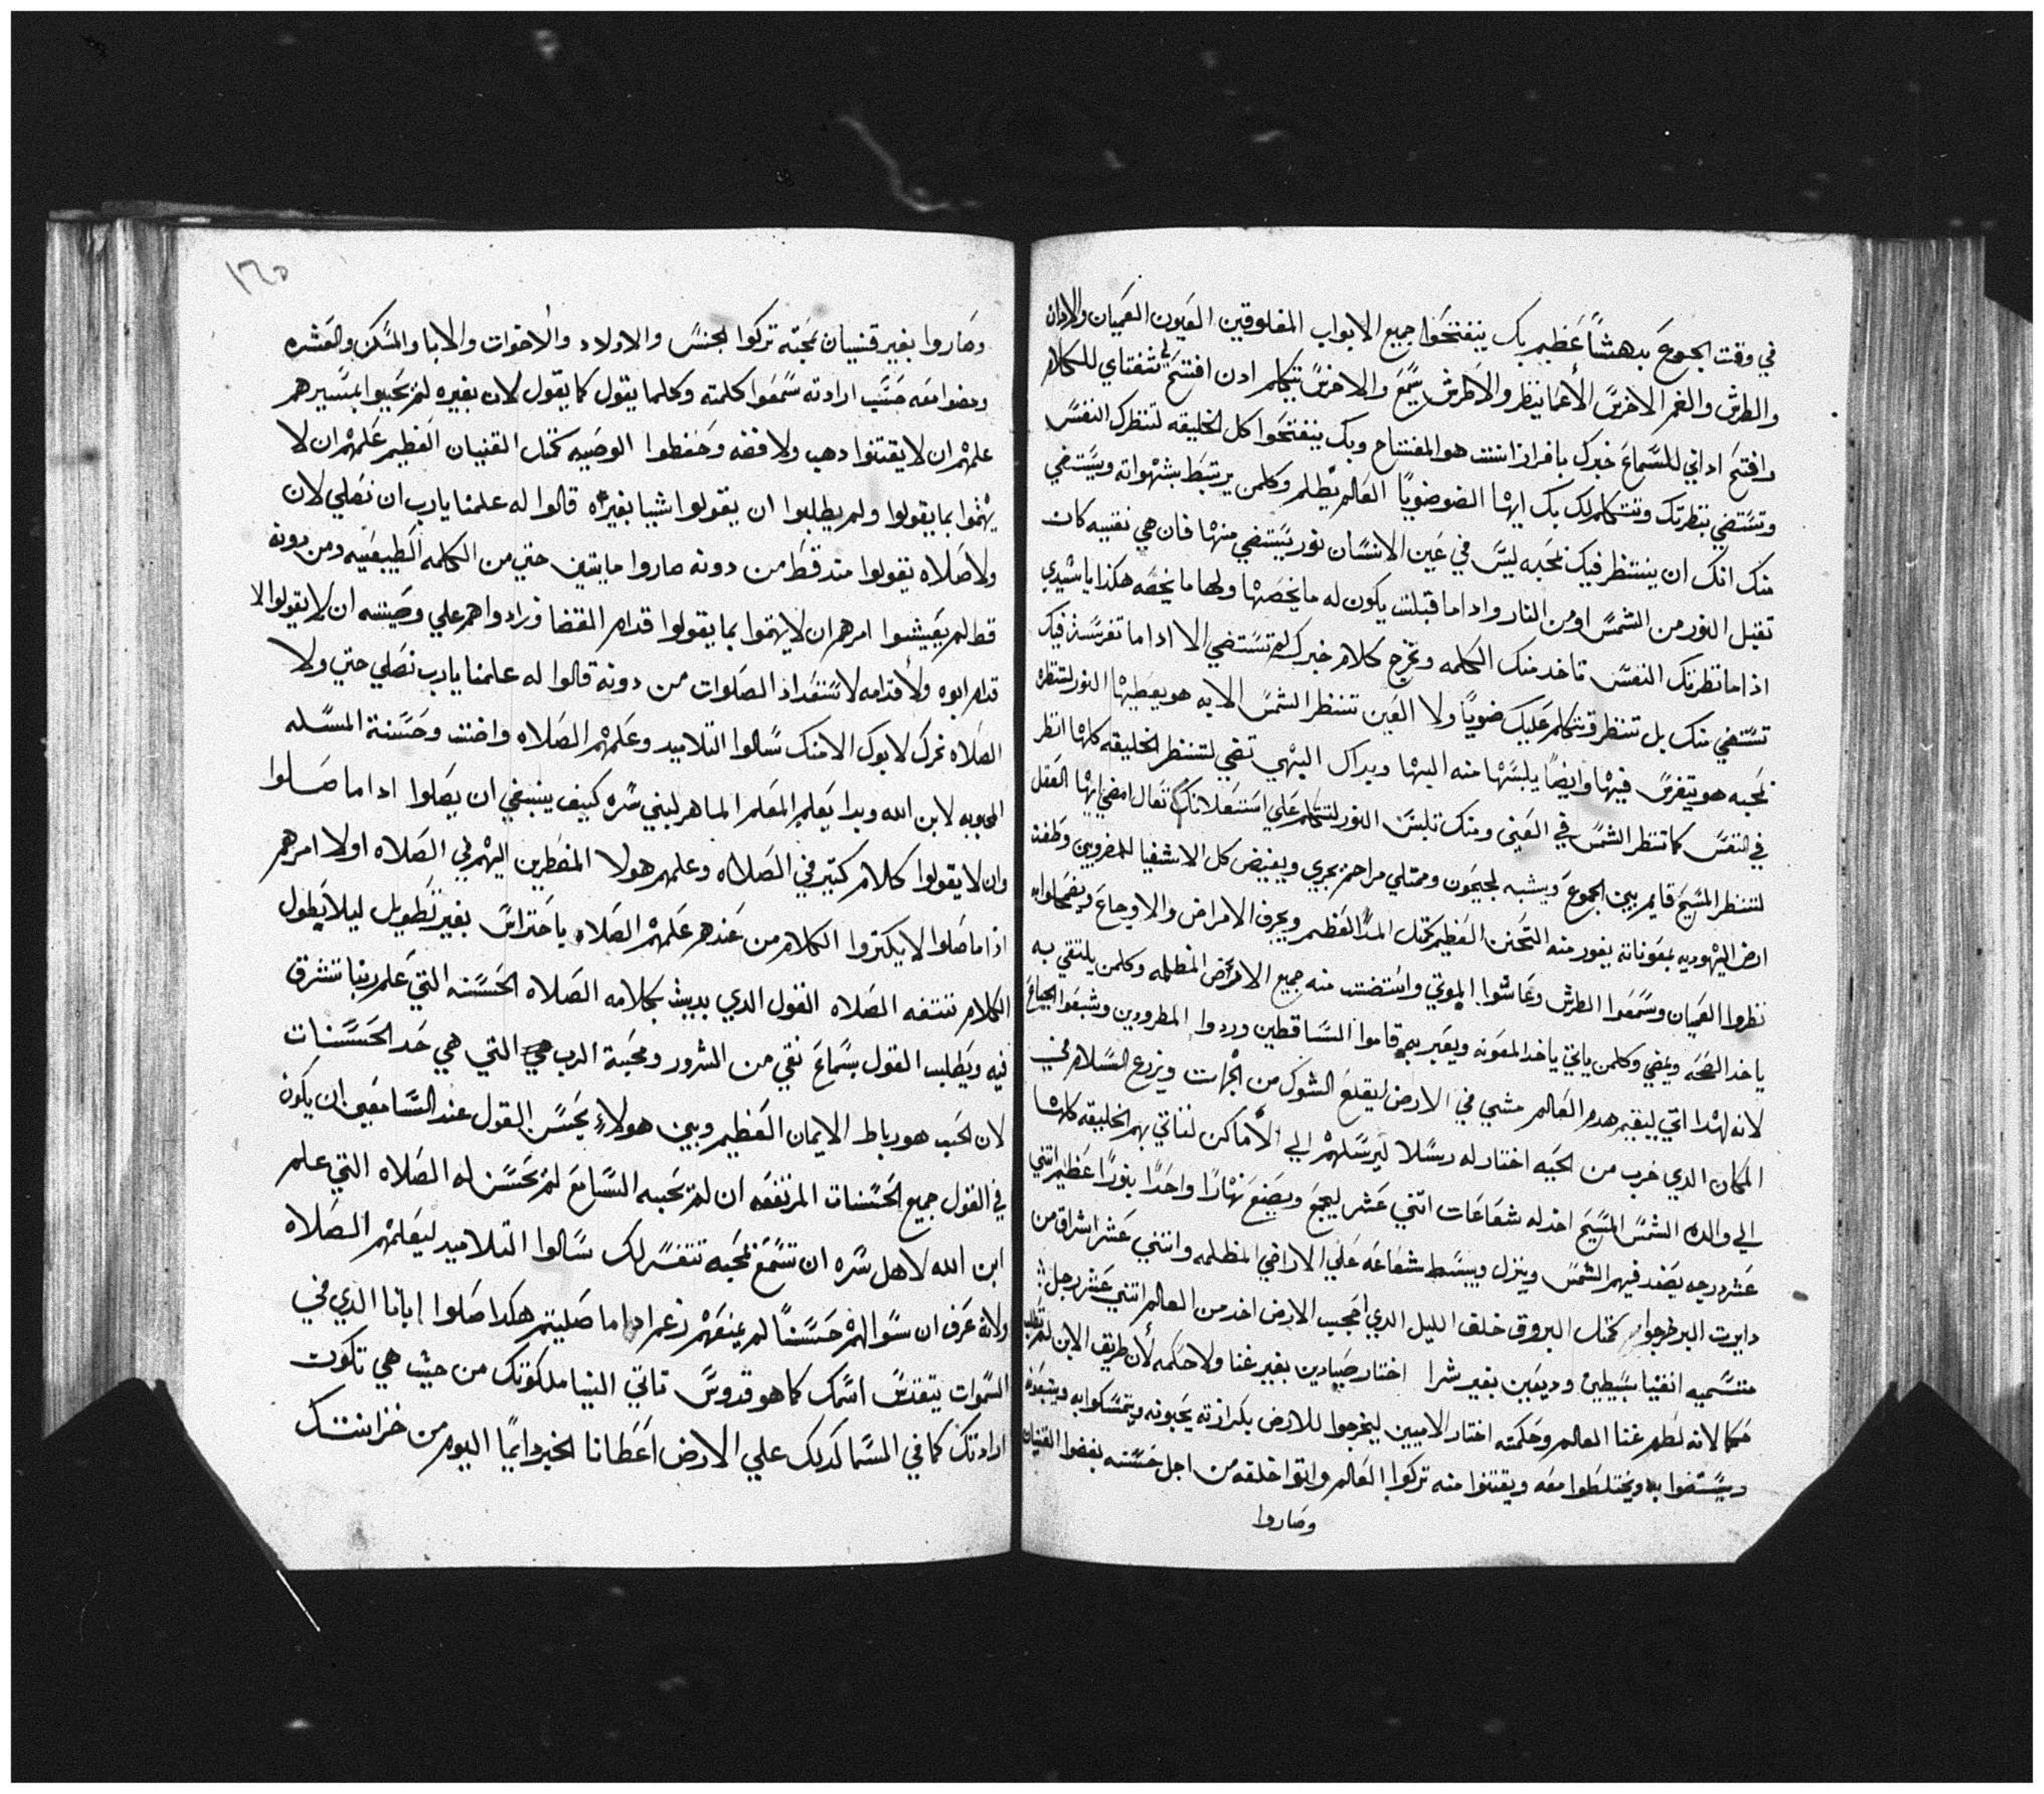 في وقت الجوع بدهشًا عظيم بك ينفتحوا جميع الابواب المغلوقين العيون العميان والادان
والطرش والفم الاخرس الأعما ينظر والاطرش يسمع والاخرس يتكلم ادن افتتح لي شفتاي للكلام
وافتح اداني للسماع خبرك بافراز انت هو المفتاح وبك ينفتحوا كل الخليقه لتنظرك النفس
وتستضي بنظرتك وتتكلم لك بك ايها الضو ضويًا العالم يظلم وكلمن يرتبط بشهواته ويستضي
منك انك ان ينتظر فيك بمحبه ليس في عين الانسان نور يستضي منها فان هي نقيه كانت
تقبل النور من الشمس او من النار واداما قبلت يكون له ما يخصها ولها ما يخصه هكذا يا سيدي
اذاما نظرتك النفس تاخد منك الكلمه وتخرج كلام خبرك لم تستضي الا اداما تفرست فيك
تستضي منك بل تنظر وتتكلم عليك ضويًا ولا العين تنظر الشمس الا به هو يعطيها النور لتنظره
بمحبه هو يتفرس فيها وايضًا يلبسها منه اليها وبداك البهي تضي لتنظر الخليقه كلها انظر
في النفس كما تنظر الشمس في العيني ومنك تلبس النور لتتكلم علي استعلانك تعال امضي ايها العقل
لتنظر المسيح قايم بين الجموع ويشبه لجيحون وممتلي مراحم يجري ويفيض كل الاشفيا للمضروبين وطفت
ارض اليهوديه بمعوناته يفور منه التحنن العظيم كمثل المدّ العظيم ويجرف الامراض والاوجاع ويضمحلوا
نظروا العميان وسمعوا الطرش وعاشوا الموتي واستضت منه جميع الارض المظلمه وكلمن يلتقي به
ياخد الصحه ويمضي وكلمن ياتي ياخد المعونه ويعبر بهم قاموا الساقطين وردوا المطرودين وشبعوا الجياع
لانه لهدا اتي ليقيم هدم العالم مشي في الارض ليقلع الشوك من الجهات ويزرع السلام في
المكان الدي خرب من المحبه اختار له رسلا ليرسلهم الي الأماكن لتاتي بهم الخليقه كلها
الي والده الشمس المسيح اخد له شعاعات اتني عشر ليجمع ويصنع نهارًا واحدًا بنورًا عظيم اتني
عشر درجه يصعد فيهم الشمس وينزل ويبسط شعاعه علي الاراضي المظلمه واتني عشر اشراق من
دايرت البر خرجوا كمثل البروق خلف الليل الدي احجب الارض اخد من العالم اتني عشر رجل
متسميه انقيا بسيطين وديعين بغير شرا اختار صيادين بغير غنا ولا حكمه لأن طريق الابن لم تطلب
حكما لانه لطم غنا العالم وحكمته اختار الاميين ليخرجوا للارض بكرازته يحبونه ويتمسكوا به ويتبعوه
ويستضوا به ويختلطوا معه ويقتنوا منه تركوا العالم واتوا خلفه من اجل حسنه بغضوا القنيان
وصاروا
١٢٥
وصاروا بغير قنيان بمحبته تركوا الجنس والاولاد والأخوات والابا والمسكن والعشره
ومضوا معه حسب ارادته سمعوا كلمته وكلما يقول كما يقول لان بغيره لم يحبوا المسير هم
علمهم ان لا يقتنوا دهب ولا فضه وحفظوا الوصيه كمثل القنيان العظيم علمهم ان لا
يهتموا بما يقولوا ولم يطلبوا ان يقولوا شيا بغيره قالوا له علمنا يا رب ان نصلي لان
ولا صلاه تقولوا متد قط من دونه صاروا مايتين حتي من الكلمه الطبيعيه ومن دونه
قط لم يعيشوا امرهم ان لا يهتموا بما يقولوا قدام القضا وزادوا هم علي وصيته ان لا يقولوا لا
قدام ابوه ولأ قدامه لاستعداد الصلوات من دونه قالوا له علمنا يا رب نصلي حتي ولا
الصلاه تحرك لابوك الا منك سالوا التلاميد وعلمهم الصلاه واضت وحسنة المسله
المحبوبه لابن الله وبدا يعلم المعلم الماهر لبني سره كيف ينبغي ان يصلوا اداما صلوا
وان لا يقولوا كلام كتير في الصلاه وعلمهم هولا المنضرين اليهم في الصلاه اولا امرهم
اذاما صلوا لا يكتروا الكلام من عندهم علمهم الصلاه باحتراس بغير تطويل ليلا يطول
الكلام تتتفه الصلاه القول الدي بديت بكلامه الصلاه الحسنه التي علم ربنا تشرق
فيه ويطلب القول بسماع نقي من الشرور ومحبة الرب هي التي هي حد الحسنات
لان الحب هو رباط الايمان العظيم وبين هولاء يحسن القول عند السامعين ان يكون
في القول جميع الحسنات المرتفعه ان لم يحبه السامع لم يحسن له الصلاه التي علم
ابن الله لاهل سره ان تسمع بمحبه تتفسر لك سالوا التلاميد ليعلمهم الصلاه
ولانه عرف ان سوالهم حسنًا لم يمنعهم زعم اداما صليتم هكدا صلوا ابانا الدي في
السموات يتقدس اسمك كما هو قدوس تاتي الينا ملكوتك من حيث هي تكون
ارادتك كما في السما كدلك علي الارض اعطانا الخبز دايمًا اليوم من خزانتك